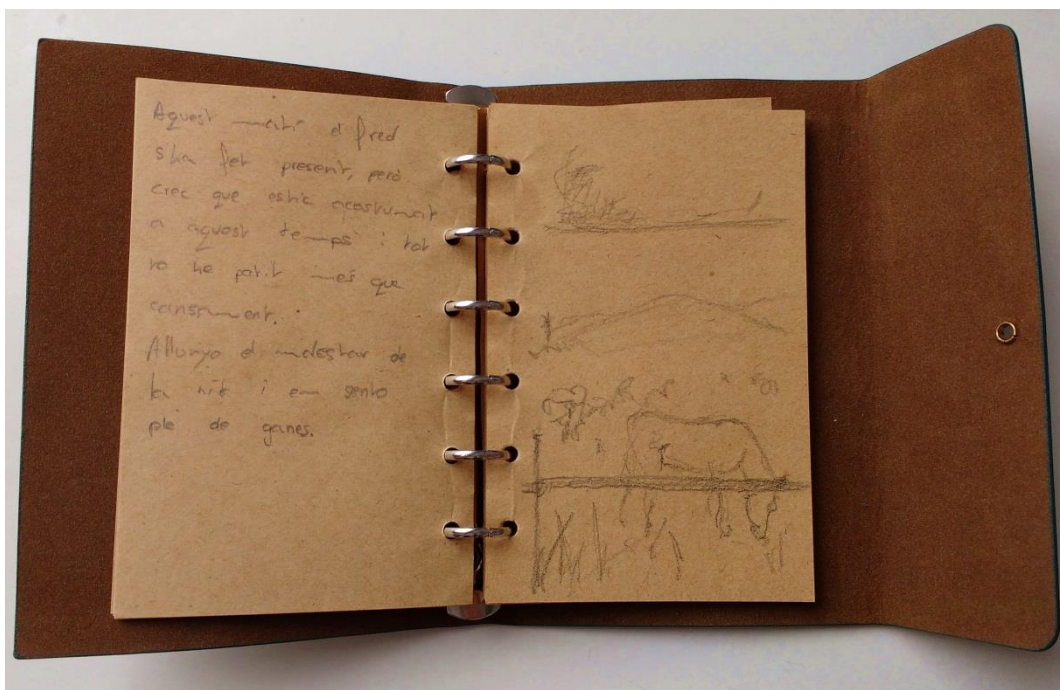 Aquest matí el fred
s'ha fet present, però
crec que estic acostumat
a aquest temps i tot
no he patit més que
Allunyo el malestar de
la nit i em sento
ple de ganes.